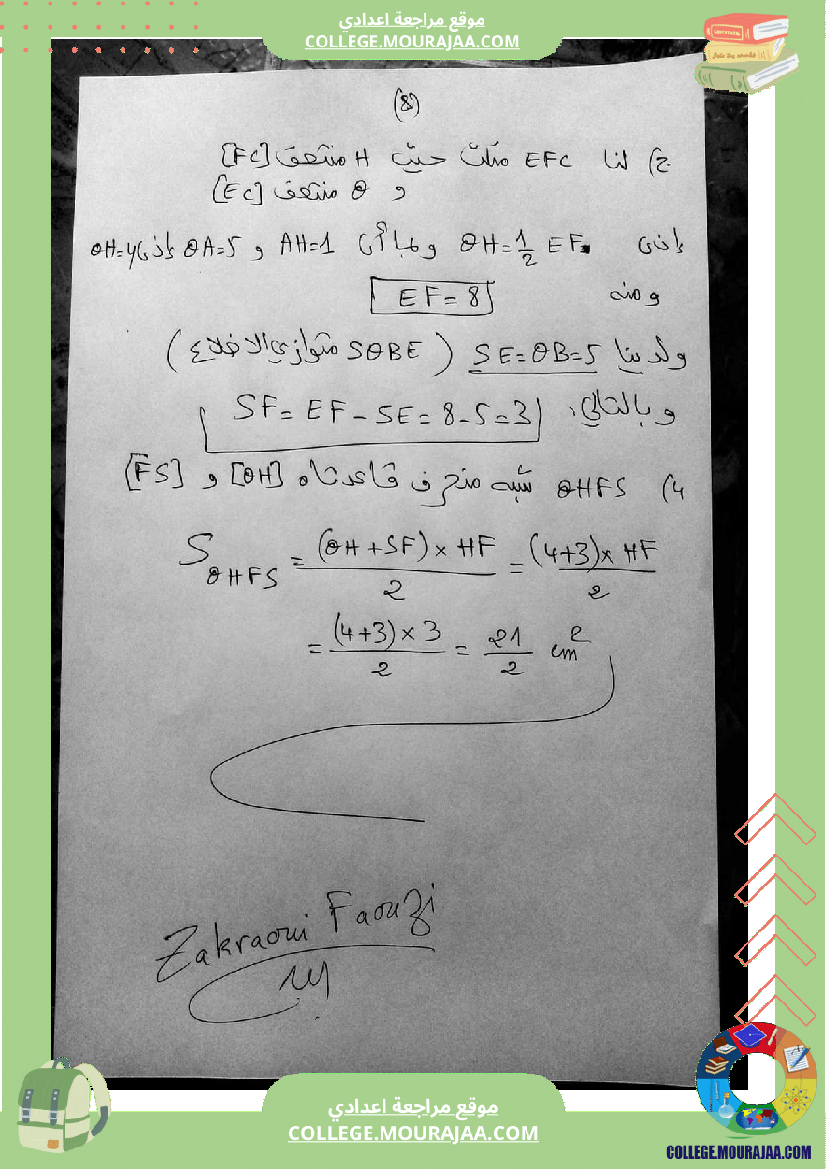 موقع مراجعة اعدادي
COLLEGE.MOURAJAA.COM
(8)
ج) لنا EFC مثلث حيث H منتصف [FC]
و θ منتصف [EC]
إذن θH=1/2 EF وبما أن AH=1 و θA=5 إذن θH=4
ومنه EF=8
ولدينا SE=θB=5 (SθBE متوازي الاضلاع)
وبالتالي، SF=EF-SE=8-5=3
4) θHFS شبه منحرف قاعدتاه [θH] و [FS]
S_θHFS = (θH+SF)×HF/2 = (4+3)×HF/2
= (4+3)×3/2 = 21/2 cm²
Zakraoui Faouzi
موقع مراجعة اعدادي
COLLEGE.MOURAJAA.COM
COLLEGE.MOURAJAA.COM